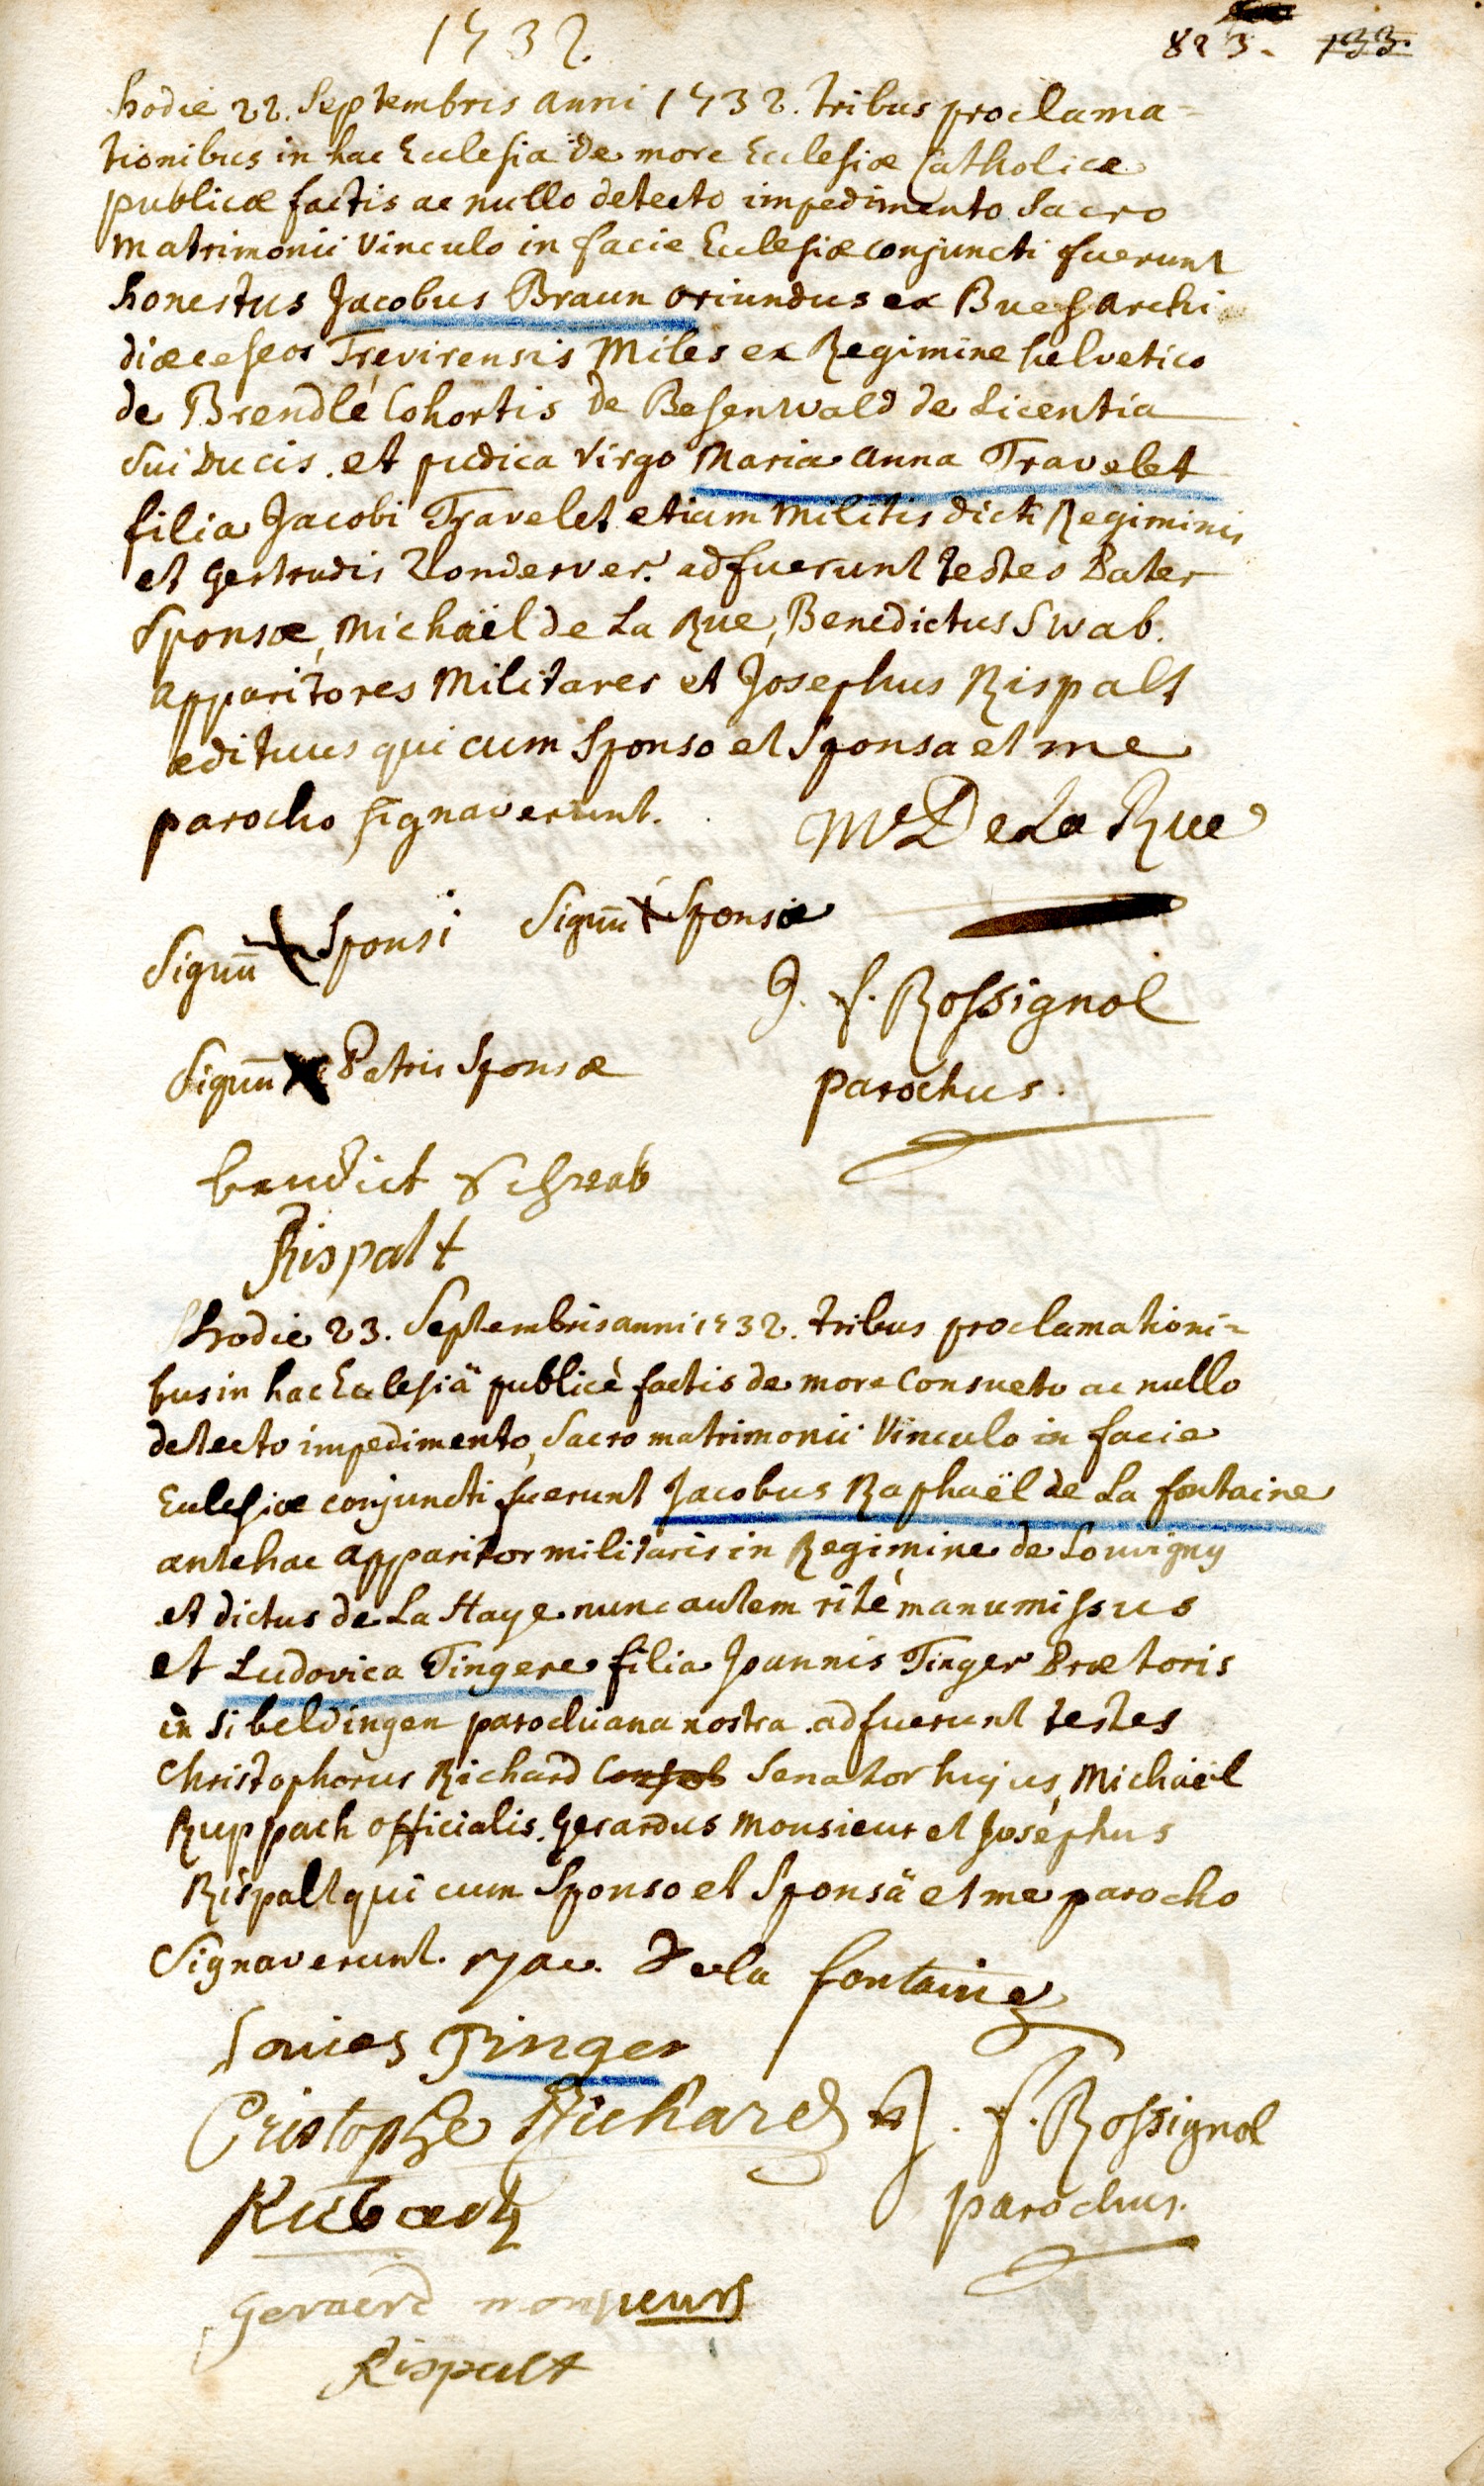 1732.
823. 133.
hodie 22. Septembris anni 1732. tribus proclama-
tionibus in hac Ecclesia de more Ecclesiæ Catholicæ
publicæ factis ac nullo detecto impedimento Sacro
Matrimonii Vinculo in facie Ecclesiæ conjuncti fuerunt
honestus Jacobus Braun oriundus ex Archi
diœceseos Trevirensis Miles ex Regimine helvetico
de Brendlé Cohortis de Besenwald de Licentia
Sui Ducis. et pudica Virgo Maria anna Travelet
filia Jacobi Travelet etiam Militis dicti Regiminis
et Gertrudis Vonderver. adfuerunt testes Pater
Sponsæ, Michaël de La Rue, Benedictus Swab.
apparitores Militares et Josephus Rispalt
ædituus qui cum Sponso et Sponsa et me
parocho signaverunt. De La Rue
Signū + Sponsi Signū + Sponsæ
J. f. Rossignol
Signū Patris Sponsæ
parochus.
benedict Schwab
Rispalt
hodie 23. Septembris anni 1732. tribus proclamationi=
bus in hac Ecclesiâ publicè factis de more Consueto ac nullo
detecto impedimento, Sacro matrimonii Vinculo in facie
Ecclesiæ conjuncti fuerunt Jacobus Raphaël de La fontaine
antehac apparitor militaris in Regimine de Louvigny
et dictus de La Haye nunc autem ritè manumissus
et Ludovica Tingere filia Joannis Tinger Prætoris
in Sibeldingen parochiana nostra. adfuerunt testes
Christophorus Richard Senator hujus, Michaël
Ruppach officialis, Gerardus Monsieur et Josephus
Rispalt qui cum Sponso et Sponsâ et me parocho
Signaverunt. Jac. de la fontaine
Louies Tinger
Cristophe Richard J. f. Rossignol
Rubach parochus.
Geraerd monsieurs
Rispalt